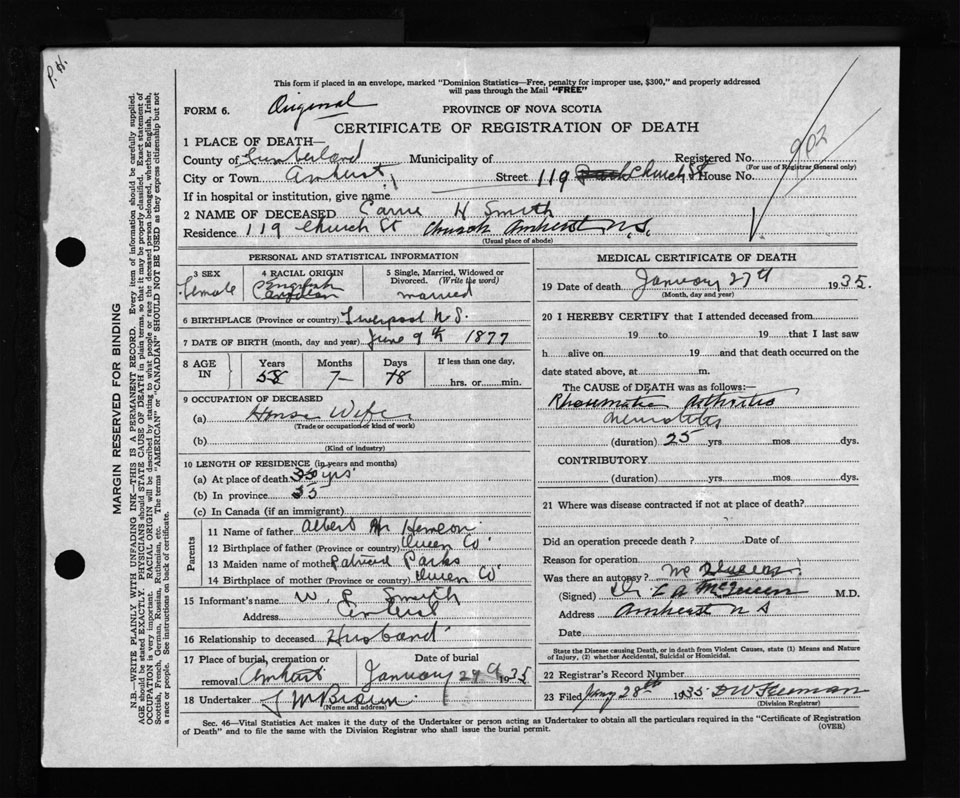 P. H.
This form if placed in an envelope, marked "Dominion Statistics—Free, penalty for improper use, $300," and properly addressed
will pass through the Mail "FREE"
FORM 6. Original PROVINCE OF NOVA SCOTIA
CERTIFICATE OF REGISTRATION OF DEATH
902
1 PLACE OF DEATH—
County of Cumberland Municipality of Registered No.
(For use of Registrar General only)
City or Town Amherst Street 119 Church St House No.
If in hospital or institution, give name
2 NAME OF DECEASED Carrie H Smith
Residence 119 Church St Church Amherst N.S.
(Usual place of abode)
PERSONAL AND STATISTICAL INFORMATION
3 SEX 4 RACIAL ORIGIN 5 Single, Married, Widowed or
Divorced. (Write the word)
Female English
Canadian married
6 BIRTHPLACE (Province or country) Liverpool N.S.
7 DATE OF BIRTH (month, day and year) June 9th 1877
8 AGE IN Years Months Days If less than one day,
58 7 18 hrs. or min.
9 OCCUPATION OF DECEASED
(a) House Wife
(Trade or occupation or kind of work)
(b)
(Kind of industry)
10 LENGTH OF RESIDENCE (in years and months)
(a) At place of death yrs
(b) In province
(c) In Canada (if an immigrant)
Parents
11 Name of father Albert
12 Birthplace of father (Province or country) Queen Co
13 Maiden name of mother Parks
14 Birthplace of mother (Province or country) Queen Co
15 Informant's name W. Smith
Address
16 Relationship to deceased Husband
17 Place of burial, cremation or Date of burial
removal Amherst January 29th 1935
18 Undertaker
(Name and address)
MEDICAL CERTIFICATE OF DEATH
19 Date of death January 27th 1935.
(Month, day and year)
20 I HEREBY CERTIFY that I attended deceased from
19 to 19 that I last saw
h alive on 19 and that death occurred on the
date stated above, at m.
The CAUSE OF DEATH was as follows:—
Rheumatic Arthritis
(duration) 25 yrs. mos. dys.
CONTRIBUTORY
(duration) yrs. mos. dys.
21 Where was disease contracted if not at place of death?
Did an operation precede death? Date of
Reason for operation
Was there an autopsy?
(Signed) Dr. E A McQueen M.D.
Address Amherst N S
Date
State the Disease causing Death, or in death from Violent Causes, state (1) Means and Nature
of Injury, (2) whether Accidental, Suicidal or Homicidal.
22 Registrar's Record Number
23 Filed Jany 28th 1935
(Division Registrar)
Sec. 46—Vital Statistics Act makes it the duty of the Undertaker or person acting as Undertaker to obtain all the particulars required in the "Certificate of Registration
of Death" and to file the same with the Division Registrar who shall issue the burial permit.
(OVER)
MARGIN RESERVED FOR BINDING
N.B.—WRITE PLAINLY WITH UNFADING INK—THIS IS A PERMANENT RECORD. Every item of information should be carefully supplied.
AGE should be stated EXACTLY. PHYSICIANS should STATE CAUSE OF DEATH in plain terms, so that it may be properly classified. Exact statement of
OCCUPATION is very important. RACIAL ORIGIN will be described by stating to what people or race the deceased person belonged, whether English, Irish,
Scottish, French, German, Russian, Ruthenian, etc. The terms "AMERICAN" or "CANADIAN" SHOULD NOT BE USED as they express citizenship but not
a race or people. See instructions on back of certificate.